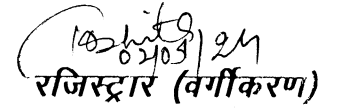 02/03/24
रजिस्ट्रार (वर्गीकरण)